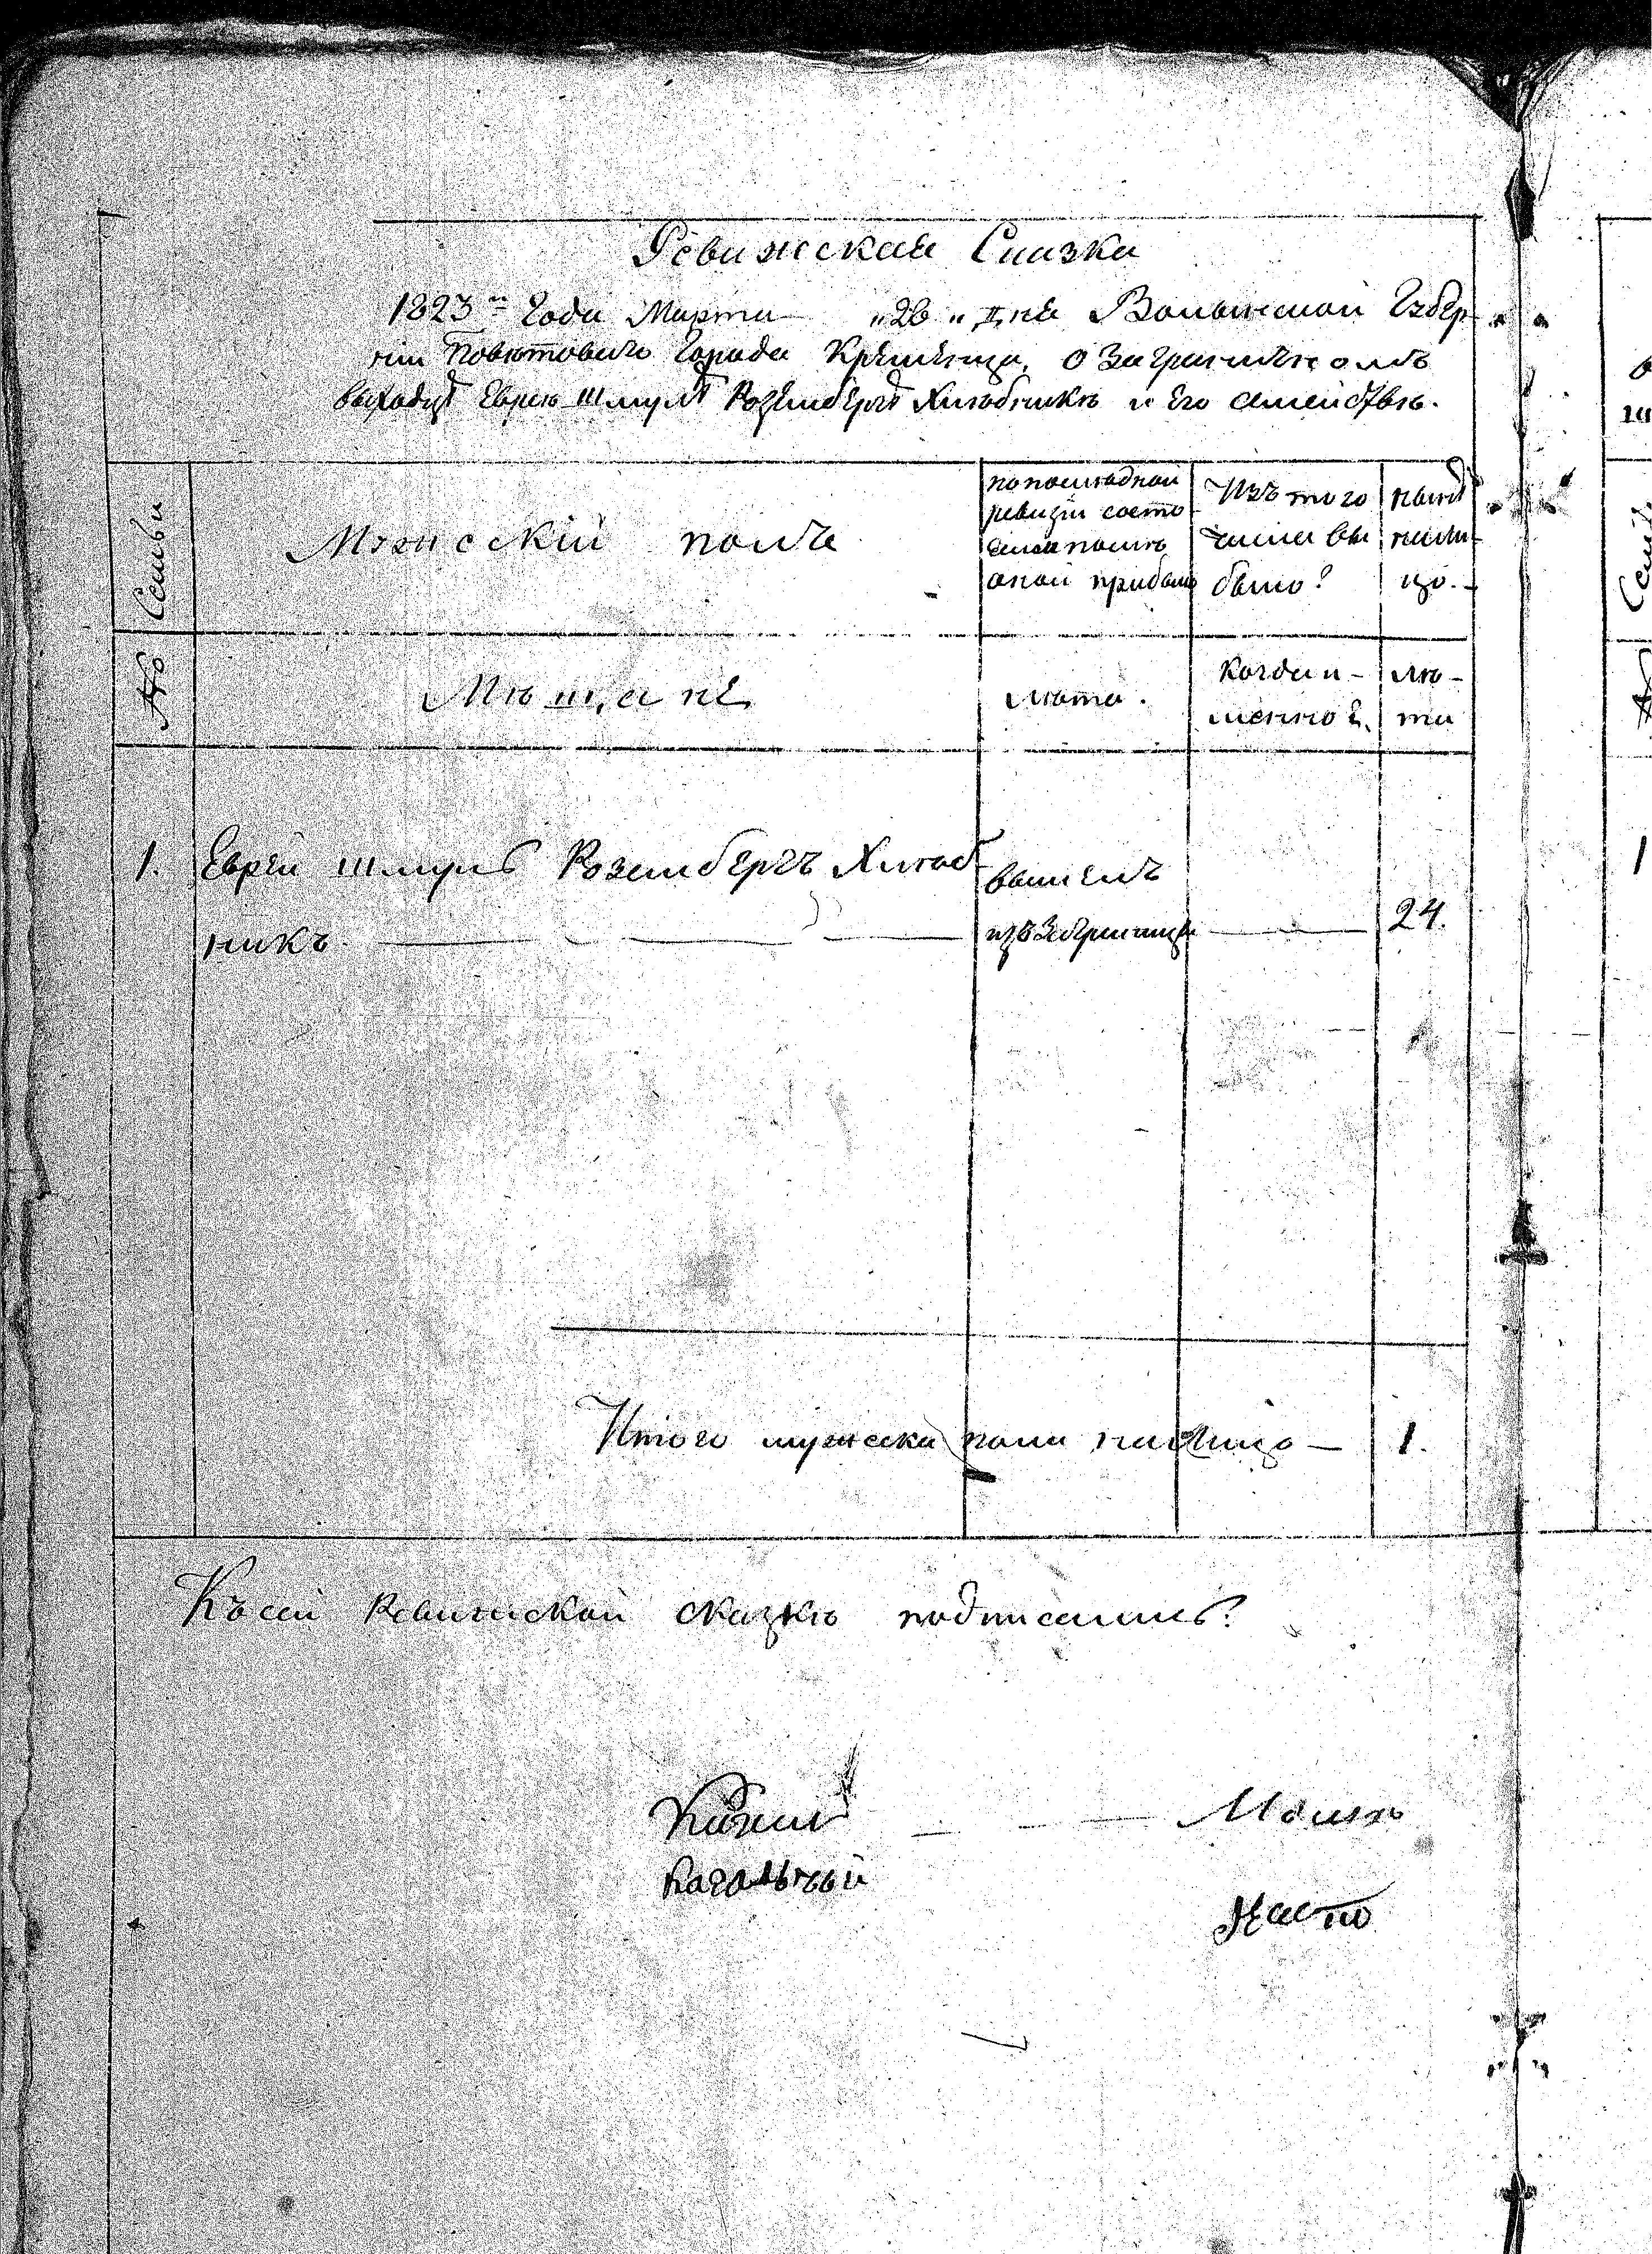 Ревижская Сказка
1823го Года Марта „26„ дня Волынской Губер
ніи Повѣтоваго Города Кременца, о Заграничномъ
выходцѣ Еврею Шмулѣ Розенбергѣ Хлѣбникѣ и Его Семействѣ.
№ Семьи
Мужескій полъ
по послѣдной
ревизіи состо
яло и послѣ
оной прибыло
Изъ того
числа вы
было?
нынѣ
на ли
цо.
Мѣщане
лѣта.
Когда и-
менно?
лѣ-
та
1. Еврей Шмуль Розенбергъ Хлѣб
никъ
вышелъ
изъ Заграницы
24.
Итого мужеска пола на лицо — 1.
Къ сей Ревижской сказкѣ подписались?
Кагальный
Мошко